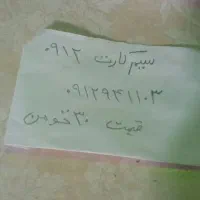 سیم کارت ۰۹۱۲
۰۹۱۲۹۴۱۱۰۳
قیمت ۳۰ تومن